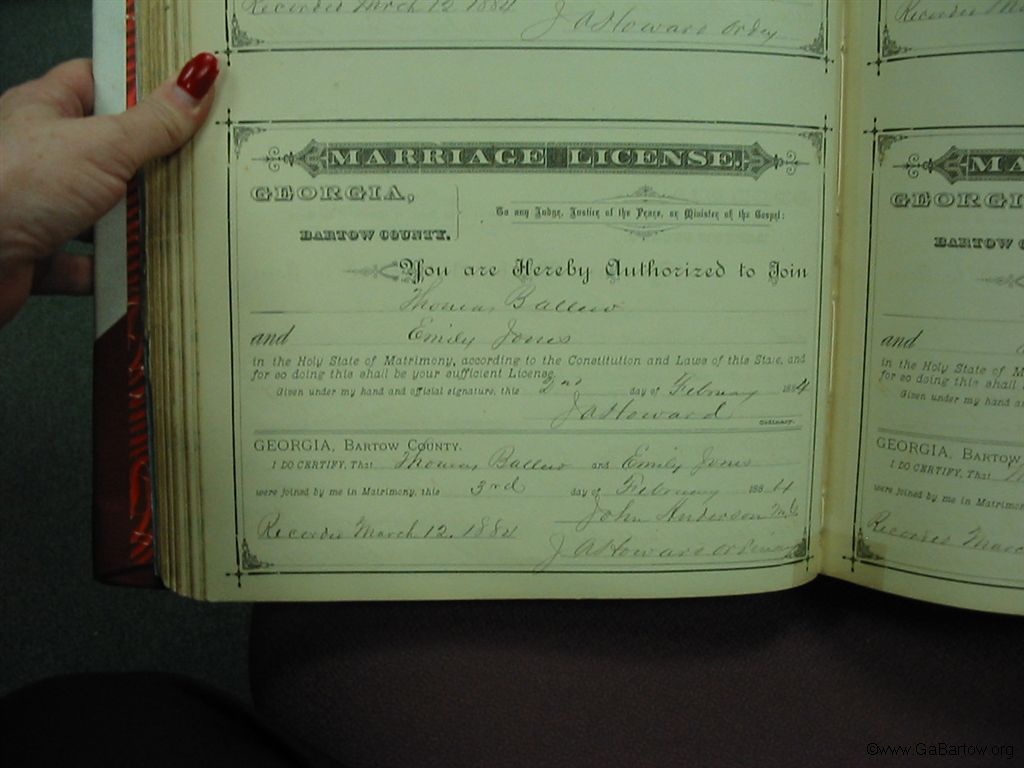 Recorded March 12 1884
J A Howard Ordry
Recorded
MARRIAGE LICENSE.
GEORGIA,
BARTOW COUNTY.
To any Judge, Justice of the Peace, or Minister of the Gospel:
You are Hereby Authorized to Join
Thomas Ballew
and Emily Jones
in the Holy State of Matrimony, according to the Constitution and Laws of this State, and
for so doing this shall be your sufficient License.
Given under my hand and official signature, this 2nd day of February 1884
J A Howard
Ordinary.
GEORGIA, BARTOW COUNTY.
I DO CERTIFY, That Thomas Ballew and Emily Jones
were joined by me in Matrimony, this 3rd day of February 1884
John Anderson M.G.
Recorded March 12. 1884
J A Howard Ordinary
MA
GEORGI
BARTOW C
and
in the Holy State of M
for so doing this shall
Given under my hand an
GEORGIA, BARTOW
I DO CERTIFY, That
were joined by me in Matrimon
Recorded Marc
©www.GaBartow.org